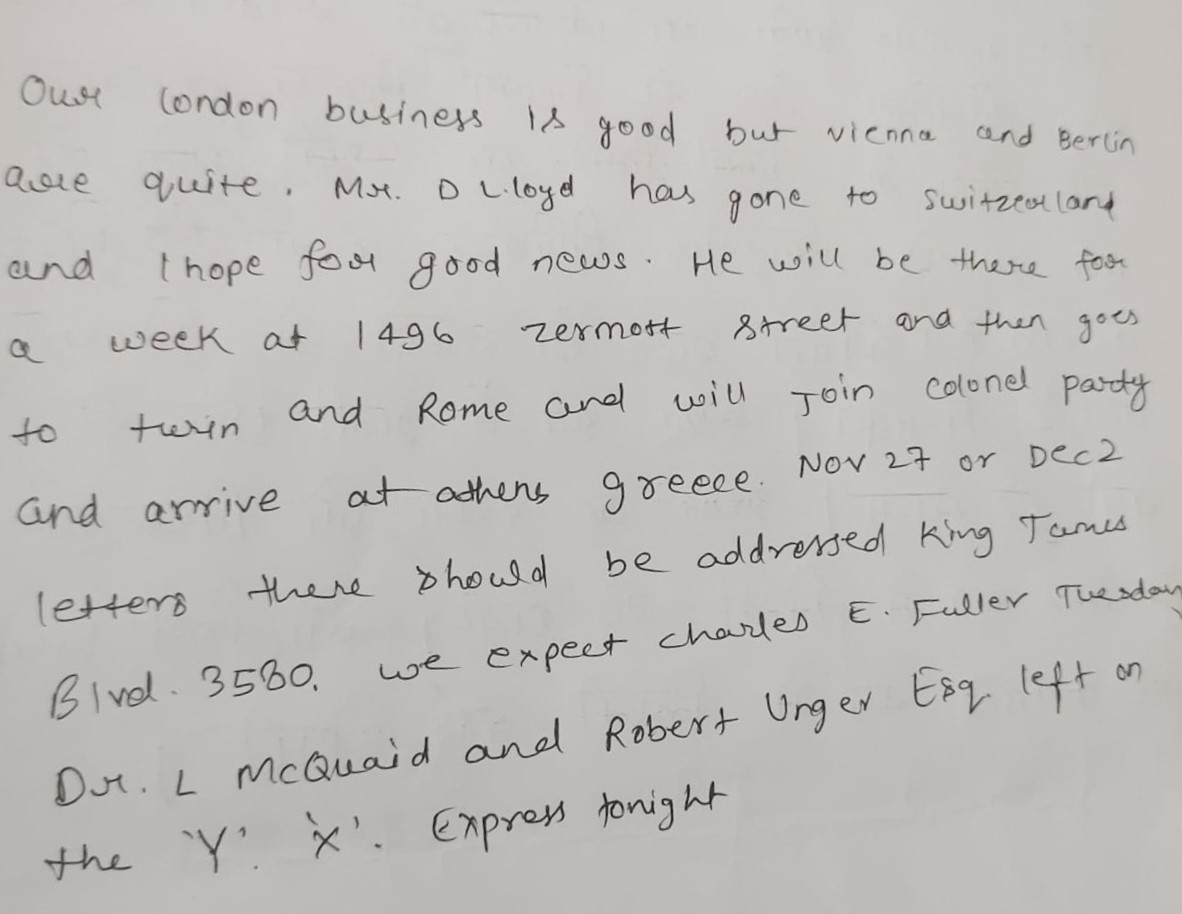 Our london business is good but vienna and Berlin
are quite. Mr. D L.loyd has gone to switzerland
and I hope for good news. He will be there for
a week at 1496 zermott street and then goes
to turin and Rome and will Join colonel party
and arrive at athens greece. Nov 27 or Dec 2
letters there should be addressed king James
Blvd. 3580. we expect charles E. Fuller Tuesday
Dr. L McQuaid and Robert Unger Esq. left on
the 'Y'. 'X'. Express tonight